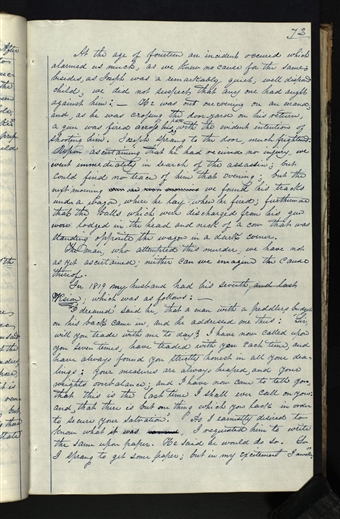 73
At the age of fourteen an incident occured which
alarmed us much, as we knew no cause for the same:
besides, as Joseph was a remarkably, quick, well disposed
child, we did not suspect, that any one had aught
against him: — He was out one evening on an errand,
and, as he was crossing the door-yard on his return,
a gun was fired across his path, with the evident intentions of
shooting him. Joseph sprang to the door, much frightened.
Upon ascertaining that he had received no injury, we
went immediately in search of the assassin; but
could find no trace of him that evening; but the
next morning we found his tracks
under a wagon, where he lay when he fired; furthermore
that the balls which were discharged from his gun
were lodged in the head and neck of a cow that was
standing opposite the wagon in a dark corner.
The man, who attempted this murder, we have not
as yet ascertained; neither can we imagine the cause
thereof.
In 1819 my husband had his seventh and last
vision; which was as follows: —
"I dreamed" said he, "that a man with a peddlers budget
on his back came in, and he addressed me thus: Sir,
will you trade with me to day? I have now called upon
you seven times, have traded with you each time, and
have always found you strictly honest in all your dea-
lings: Your measures are always heaped, and your
weights overbalance; and I have now come to tell you,
that this is the last time I shall ever call on you;
and, that there is but one thing which you lack in order
to secure your salvation." As I earnestly desired to
know what it was I requested him to write
the same upon paper. He said he would do so. So
I sprang to get some paper; but in my excitement I awoke.